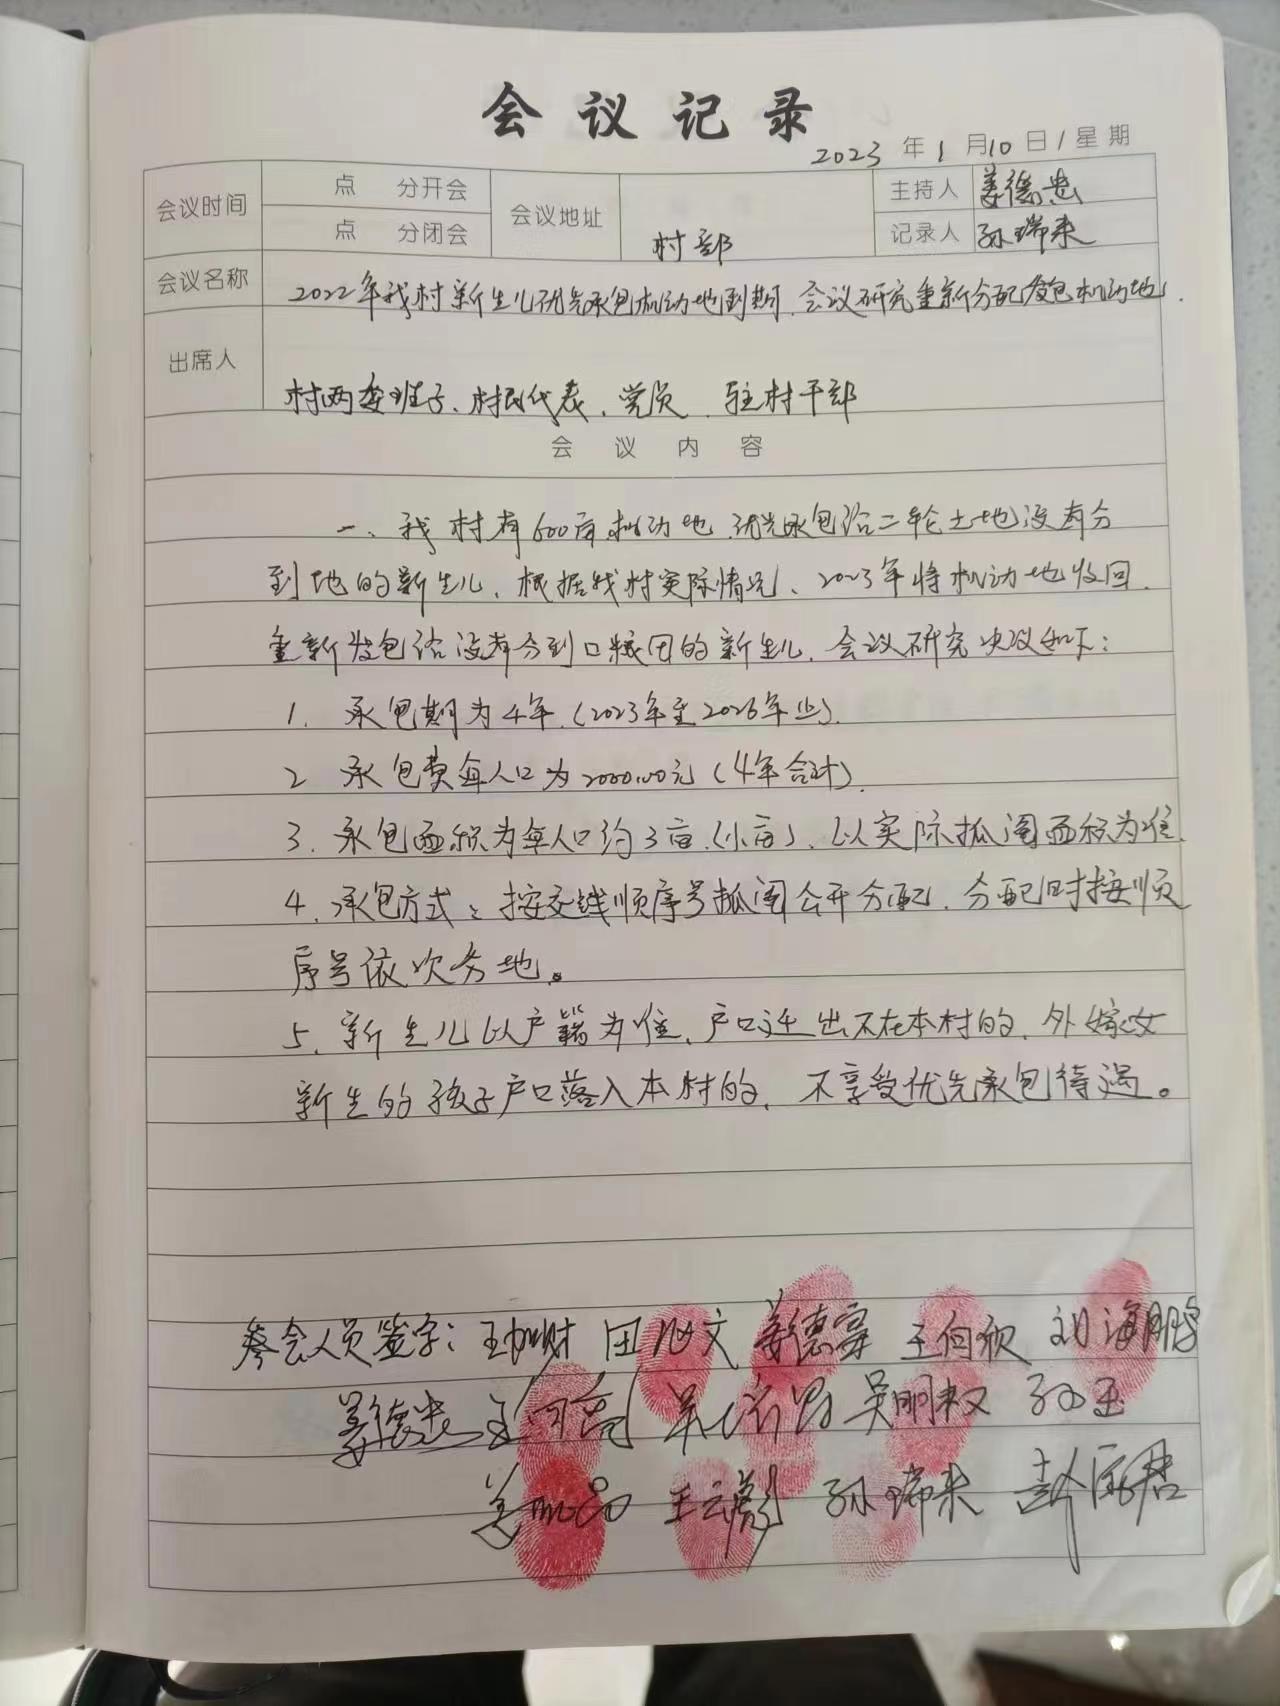 会议记录
2023年1月10日1星期
会议时间 点 分开会 会议地址 村部 主持人 姜德忠
点 分闭会 记录人 孙瑞来
会议名称 2022年我村新生儿优先承包机动地到期.会议研究重新分配发包机动地.
出席人 村两委班子、村民代表、党员、驻村干部
会议内容
一、我村有600亩机动地.优先承包给二轮土地没有分
到地的新生儿、根据我村实际情况、2023年将机动地收回.
重新发包给没有分到口粮田的新生儿、会议研究决议如下：
1. 承包期为4年.(2023年至2026年止).
2 承包费每人口为2000.00元(4年合计).
3. 承包面积为每人口约3亩.(小亩)、以实际抓阄面积为准.
4. 承包方式：按交钱顺序号抓阄公开分配、分配时按顺
序号依次分地。
5. 新生儿以户籍为准、户口迁出不在本村的、外嫁女
新生的孩子户口落入本村的、不享受优先承包待遇。
参会人员签字：田 文 姜德 王向 刘海鹏
姜德忠 吴明权 孙玉
姜 王云彪 孙瑞来